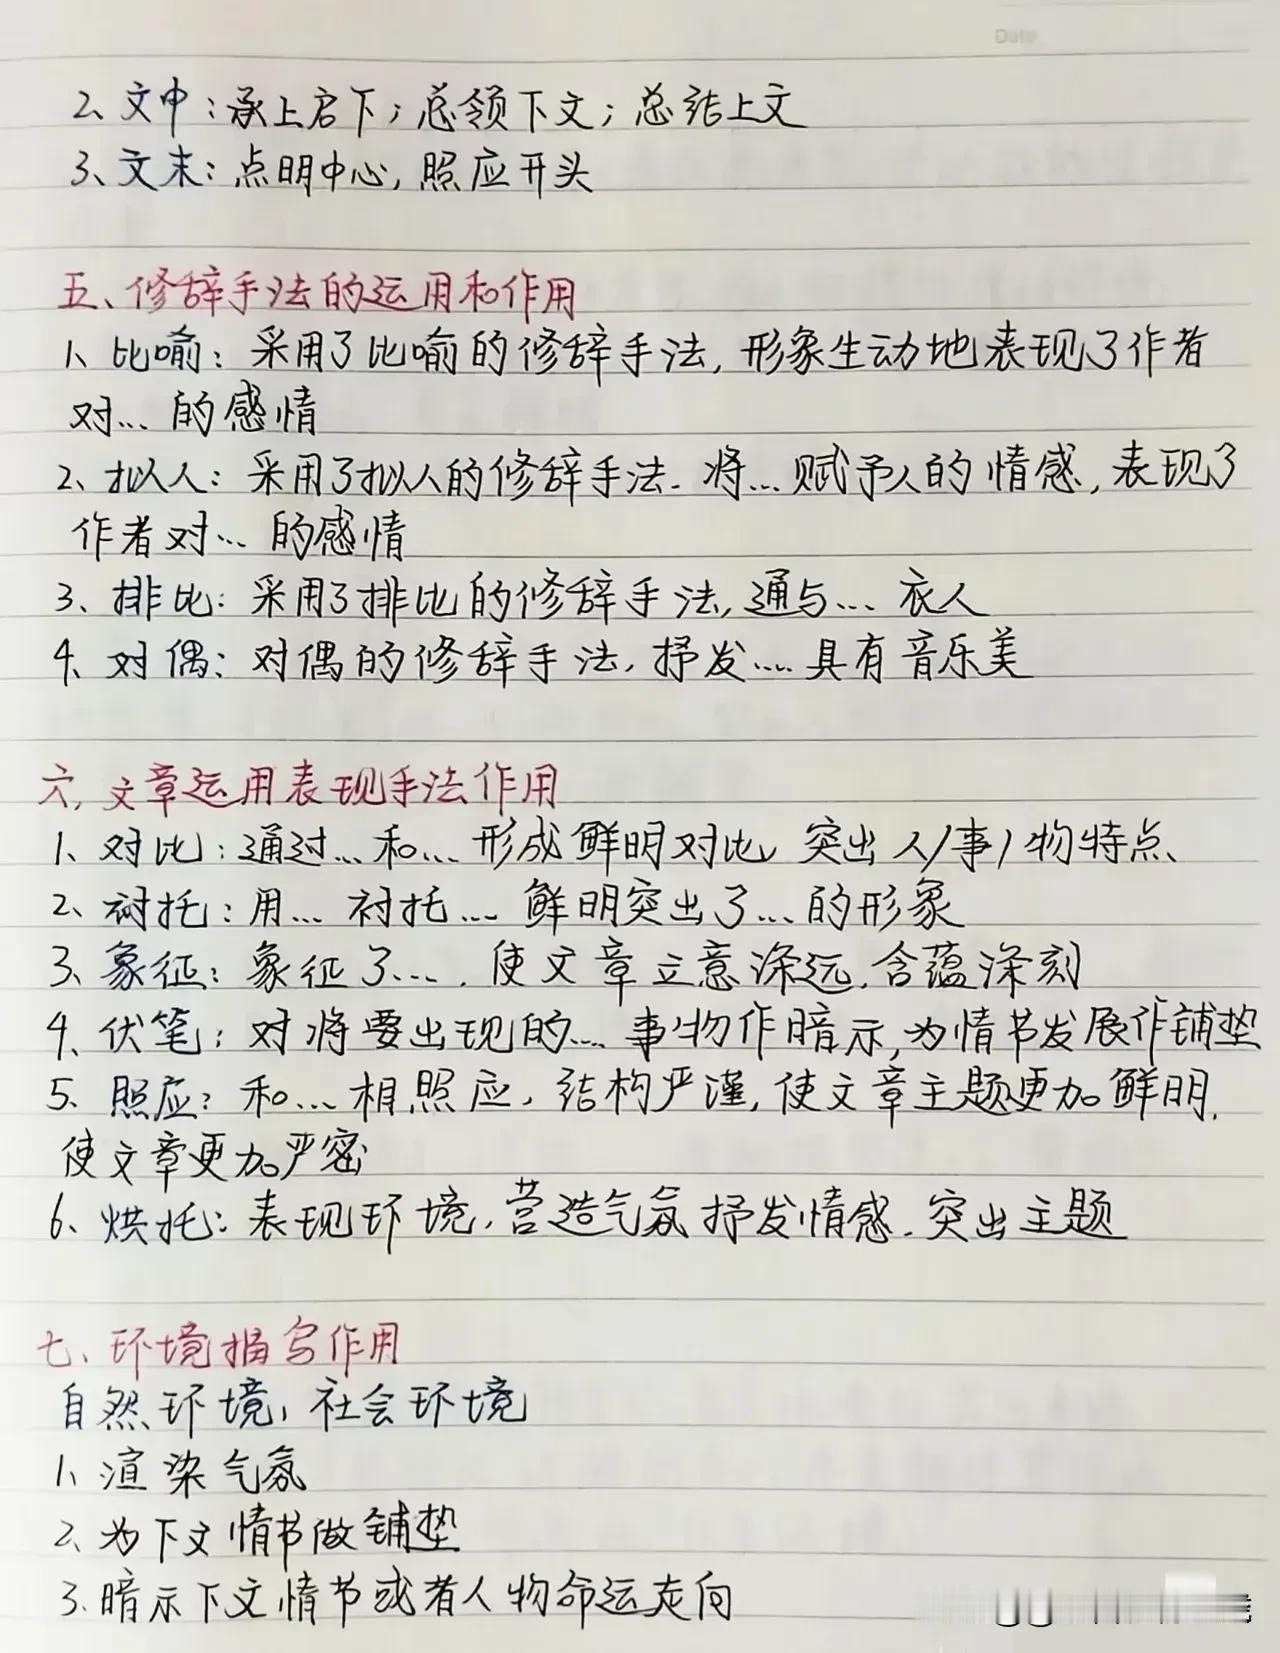 Date
2、文中：承上启下；总领下文；总结上文
3、文末：点明中心，照应开头
五、修辞手法的运用和作用
1、比喻：采用了比喻的修辞手法，形象生动地表现了作者
对…的感情
2、拟人：采用了拟人的修辞手法.将…赋予人的情感，表现了
作者对…的感情
3、排比：采用了排比的修辞手法，通与…衣人
4、对偶：对偶的修辞手法，抒发…具有音乐美
六、文章运用表现手法作用
1、对比：通过…和…形成鲜明对比，突出人/事/物特点、
2、衬托：用…衬托…鲜明突出了…的形象
3、象征：象征了….使文章立意深远.含蕴深刻
4、伏笔：对将要出现的…事物作暗示，为情节发展作铺垫
5、照应：和…相照应，结构严谨，使文章主题更加鲜明.
使文章更加严密
6、烘托：表现环境，营造气氛抒发情感.突出主题
七、环境描写作用
自然环境，社会环境
1、渲染气氛
2、为下文情节做铺垫
3、暗示下文情节或者人物命运走向